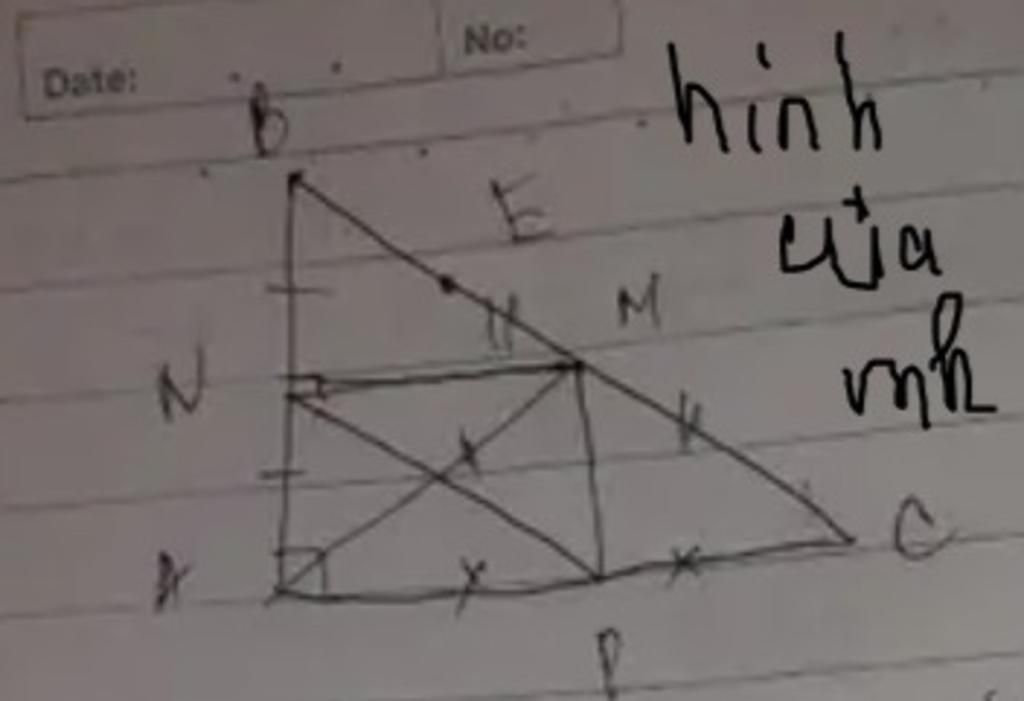 Date:
No:
B
hình
E
của
M
N
mk
A
C
P